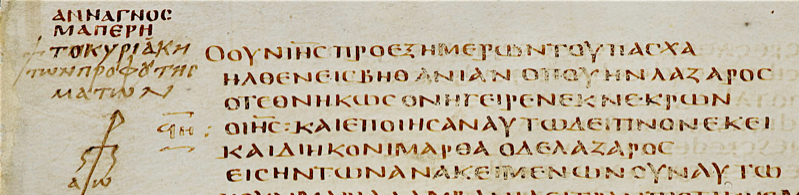 ΑΝΝΑΓΝΟϹ
ΜΑΠΕΡΗ
ΤΟΚΥΡΙΑΚΗ
ΤΩΝΠΡΟΦΟΤΗϹ
ΜΑΤΩΝ
ΟΟΥΝΙΗϹΠΡΟΕΞΗΜΕΡΩΝΤΟΥΠΑϹΧΑ
ΗΛΘΕΝΕΙϹΒΗΘΑΝΙΑΝΟΠΟΥΗΝΛΑΖΑΡΟϹ
ΟΤΕΘΝΗΚΩϹΟΝΗΓΕΙΡΕΝΕΚΝΕΚΡΩΝ
ΟΙΗϹ:ΚΑΙΕΠΟΙΗϹΑΝΑΥΤΩΔΕΙΠΝΟΝΕΚΕΙ
ΚΑΙΔΙΗΚΟΝΙΜΑΡΘΑΟΔΕΛΑΖΑΡΟϹ
ΕΙϹΗΝΤΩΝΑΝΑΚΕΙΜΕΝΩΝϹΥΝΑΥΤΩ
Α Ω